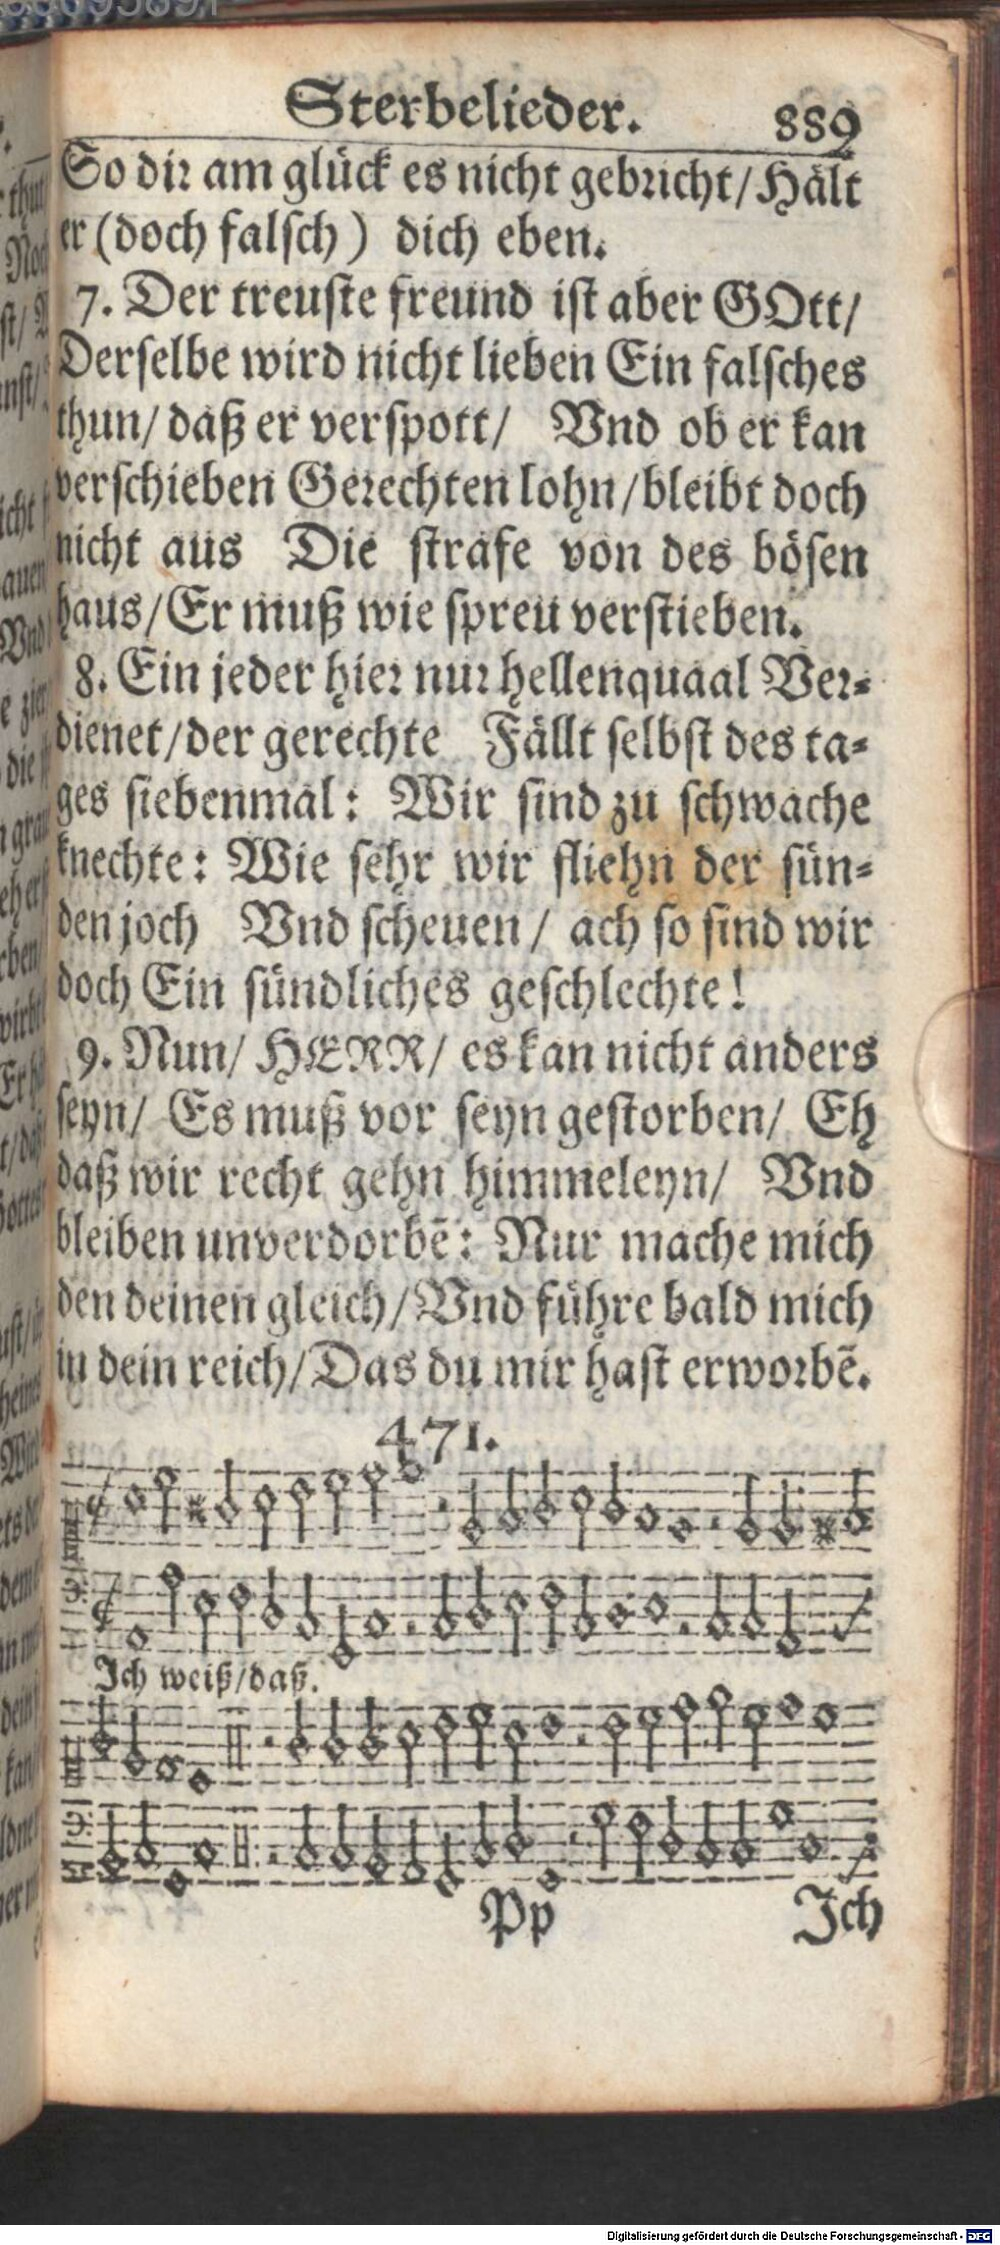 Sterbelieder. 889
So dir am glück es nicht gebricht/Hält
er (doch falsch) dich eben.
7. Der treuste freund ist aber GOtt/
Derselbe wird nicht lieben Ein falsches
thun/ daß er verspott/ Vnd ob er kan
verschieben Gerechten lohn/bleibt doch
nicht aus Die strafe von des bösen
haus/Er muß wie spreu verstieben.
8. Ein jeder hier nur hellenquaal Ver-
dienet/der gerechte Fällt selbst des ta-
ges siebenmal: Wir sind zu schwache
knechte: Wie sehr wir fliehn der sün-
den joch Vnd scheuen/ ach so sind wir
doch Ein sündliches geschlechte!
9. Nun/ HERR/ es kan nicht anders
seyn/ Es muß vor seyn gestorben/ Eh
daß wir recht gehn himmeleyn/ Vnd
bleiben unverdorbē: Nur mache mich
den deinen gleich/Vnd führe bald mich
in dein reich/Das du mir hast erworbē.
471.
Ich weiß/daß.
Pp Ich
Digitalisierung gefördert durch die Deutsche Forschungsgemeinschaft - DFG